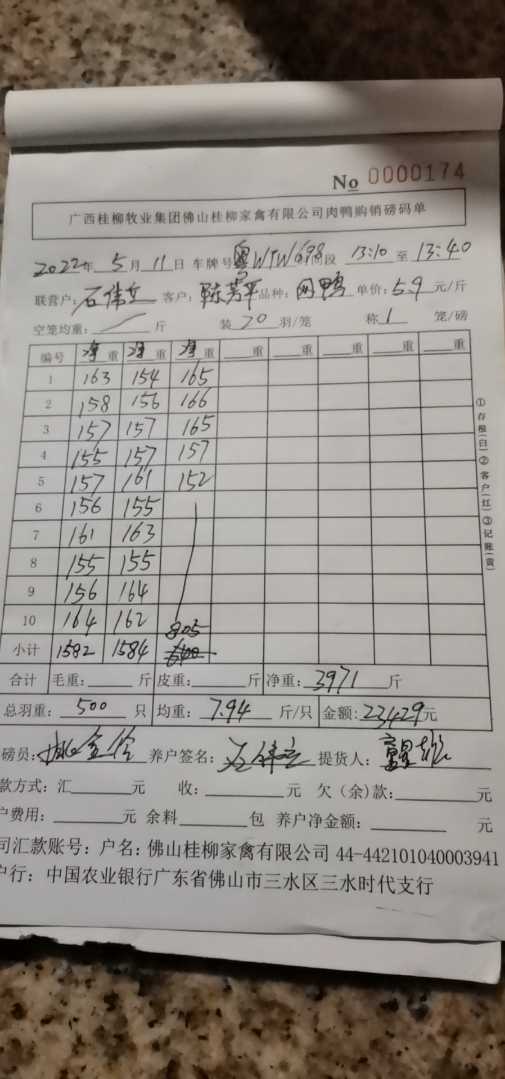 No 0000174
广西桂柳牧业集团佛山桂柳家禽有限公司肉鸭购销磅码单
2022年 5月 11日 车牌号 粤WTW 段 13:10 至 13:40
联营户: 石伟立 客户: 陈芳平 品种: 网鸭 单价: 5.9 元/斤
空笼均重: / 斤 装 20 羽/笼 称 1 笼/磅
编号 净重 净重 净重 重 重 重 重
1 163 154 165
2 158 156 166
3 157 157 165
4 155 157 157
5 157 161 152
6 156 155
7 161 163
8 155 155
9 156 164
10 164 162
805
小计 1582 1584
合计 毛重: 斤 皮重: 斤 净重: 3971 斤
总羽重: 500 只 均重: 7.94 斤/只 金额: 23429元
磅员: 养户签名: 石伟立 提货人:
款方式: 汇 元 收: 元 欠(余)款: 元
户费用: 元 余料 包 养户净金额: 元
司汇款账号: 户名: 佛山桂柳家禽有限公司 44-442101040003941
户行: 中国农业银行广东省佛山市三水区三水时代支行
①存根(白)②客户(红)③记账(黄)